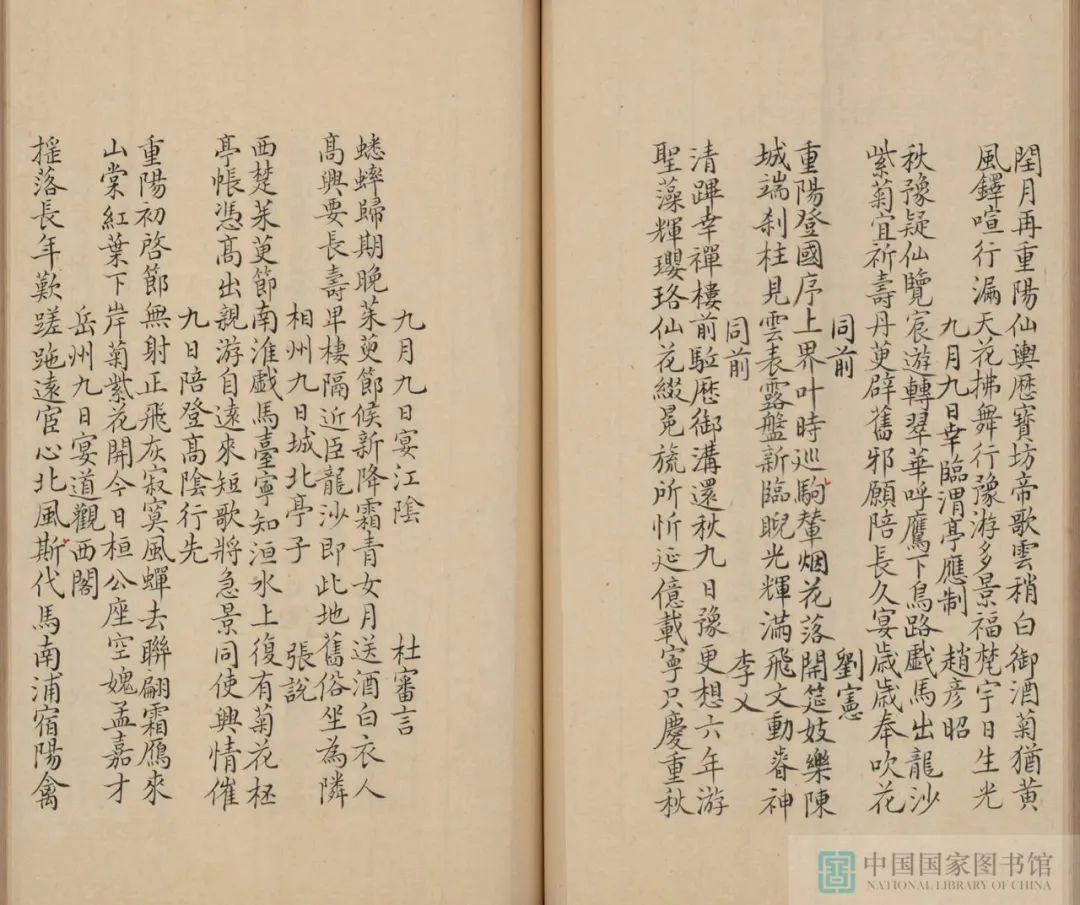 閏月再重陽仙輿歷寶坊帝歌雲稍白御酒菊猶黄
風鐸喧行漏天花拂舞行豫游多景福梵宇日生光
九月九日幸臨渭亭應制 趙彦昭
秋豫疑仙覽宸遊轉翠華呼鷹下鳥路戲馬出龍沙
紫菊宜祈壽丹萸辟舊邪願陪長久宴歲歲奉吹花
同前 劉憲
重陽登國序上界叶時巡駒輦烟花落開筵妓樂陳
城端刹柱見雲表露盤新臨睨光輝滿飛文動睿神
同前 李乂
清蹕幸禪樓前驅歷御溝還秋九日豫更想六年游
聖藻輝瓔珞仙花綴冕旒所忻延億載寧只慶重秋
九月九日宴江陰 杜審言
蟋蟀歸期晚茱萸節候新降霜青女月送酒白衣人
高興要長壽卑棲隔近臣龍沙即此地舊俗坐為隣
相州九日城北亭子 張說
西楚茱萸節南淮戲馬臺寧知洹水上復有菊花杯
亭帳憑高出親游自遠來短歌將急景同使興情催
九日陪登高陰行先
重陽初啓節無射正飛灰寂寞風蟬去聯翩霜鴈來
山棠紅葉下岸菊紫花開今日桓公座空媿孟嘉才
岳州九日宴道觀西閣
摇落長年歎蹉跎遠宦心北風斯代馬南浦宿陽禽
中国国家图书馆
NATIONAL LIBRARY OF CHINA